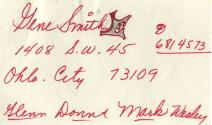 Gene Smith 8
1408 S.W. 45 6814573
Okla. City 73109
Glenn Donna Mark Wesley